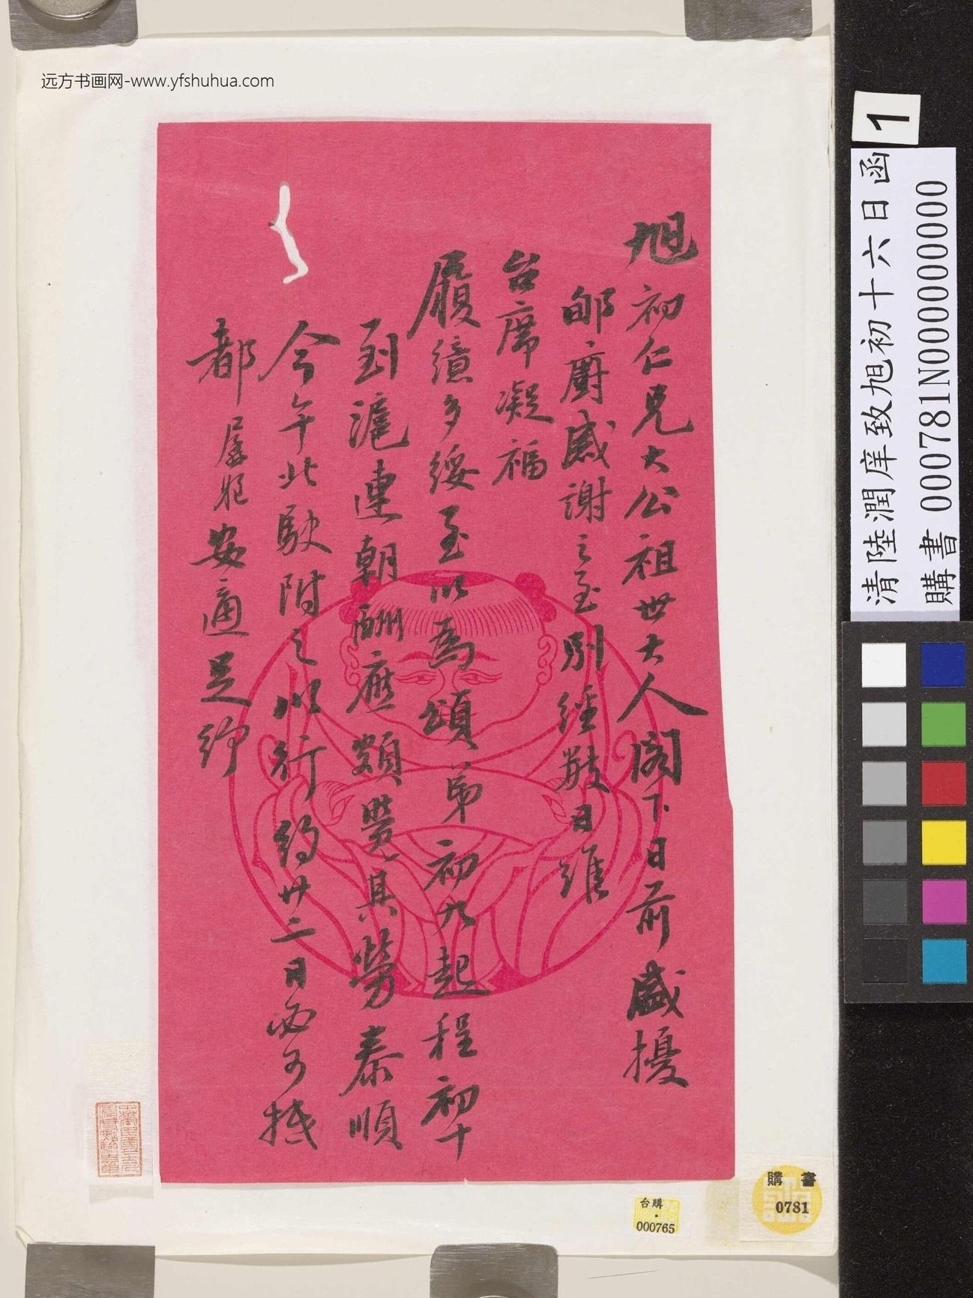 远方书画网-www.yfshuhua.com
旭初仁兄大公祖世大人閣下日前盛擾
郇廚感謝之至別經數日維
台席凝福
履繶多綏至以為頌弟初九起程初十
到滬連朝酬應頗嘗其勞泰順
今午北駛附之以行約廿二日必可抵
都屆期安適足紓
1
清陸潤庠致旭初十六日函
購書 000781N000000000
購書
0781
台購
000765